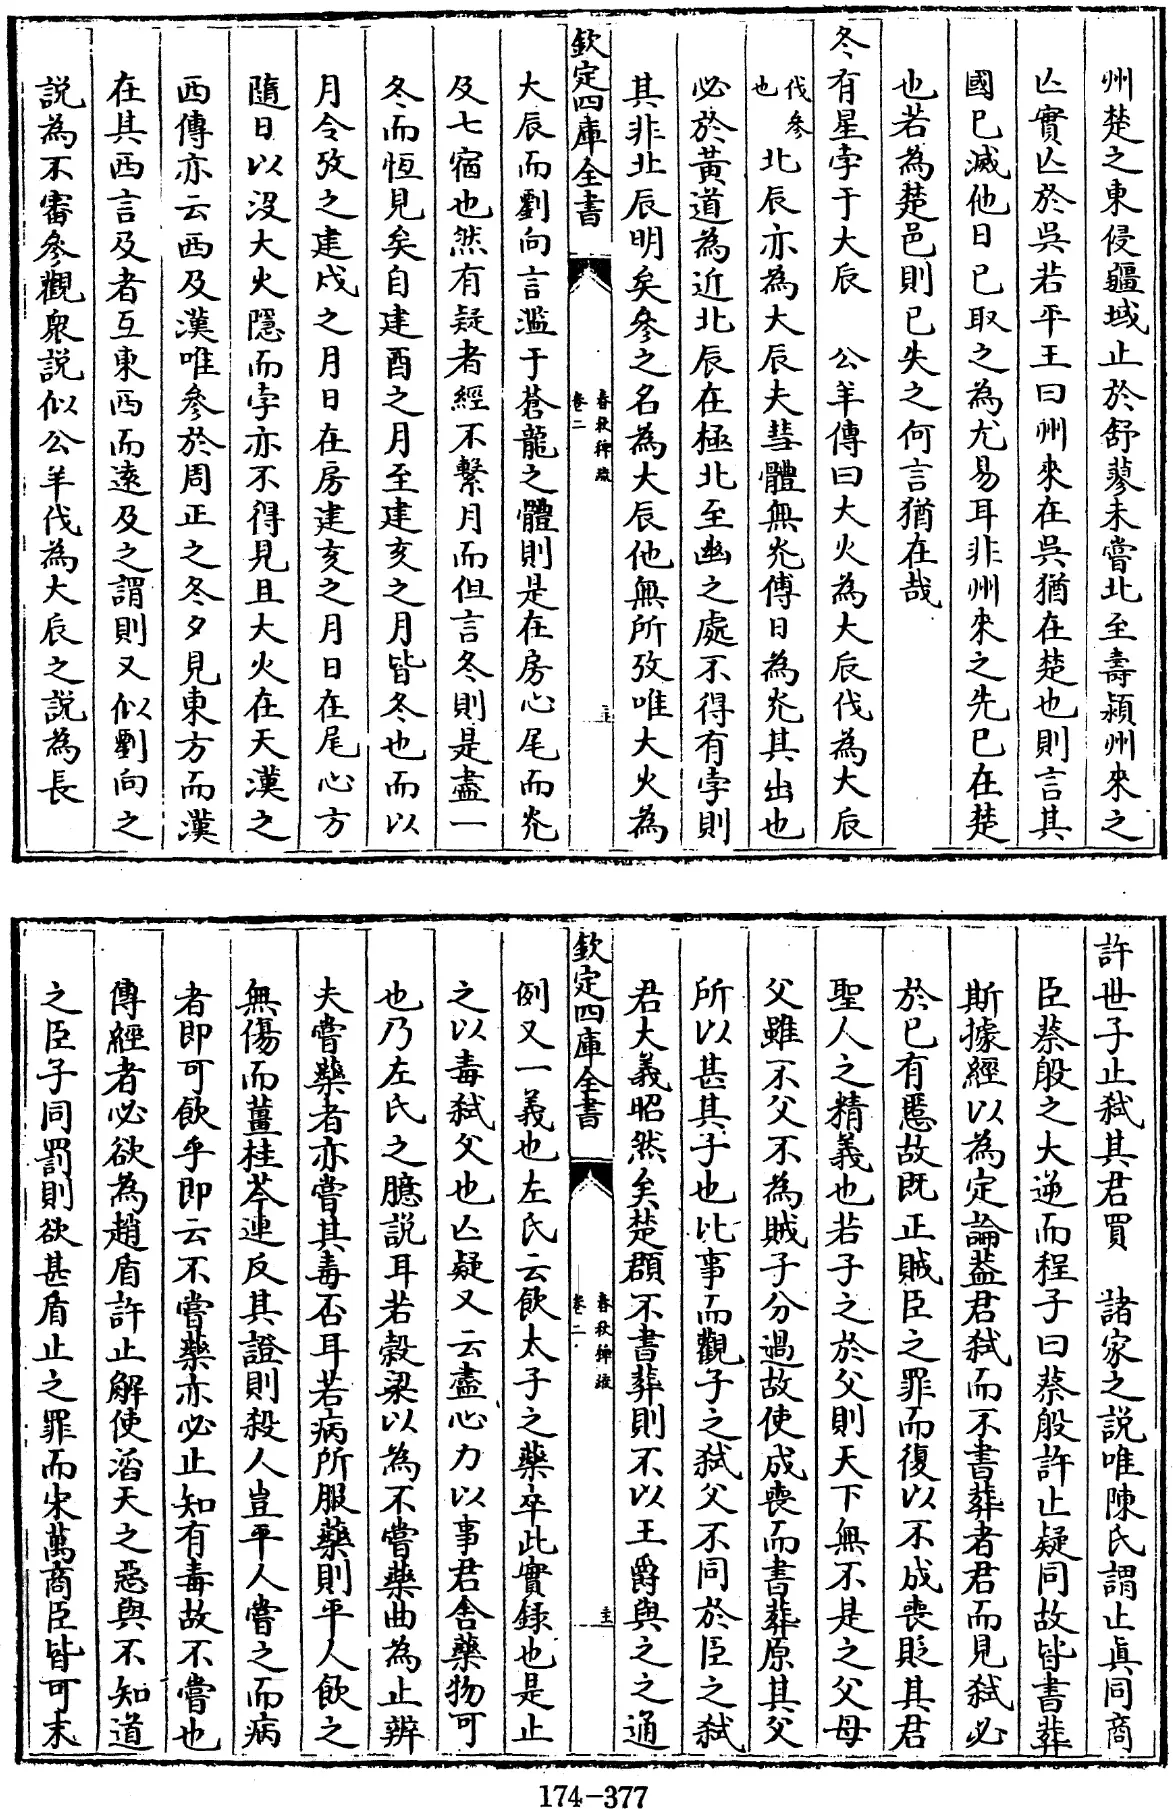 州楚之東侵疆域止於舒蓼未嘗北至壽潁州來之
亾實亾於吳若平王曰州來在吳猶在楚也則言其
國已滅他日已取之為尤易耳非州來之先已在楚
也若為楚邑則已失之何言猶在哉
冬有星孛于大辰　公羊傳曰大火為大辰伐為大辰
伐參也北辰亦為大辰夫彗體無光傅日為光其出也
必於黃道為近北辰在極北至幽之處不得有孛則
其非北辰明矣參之名為大辰他無所攷唯大火為
欽定四庫全書　春秋稗疏卷二
大辰而劉向言濫于蒼龍之體則是在房心尾而光
及七宿也然有疑者經不繫月而但言冬則是盡一
冬而恒見矣自建酉之月至建亥之月皆冬也而以
月令攷之建戌之月日在房建亥之月日在尾心方
隨日以沒大火隱而孛亦不得見且大火在天漢之
西傳亦云西及漢唯參於周正之冬夕見東方而漢
在其西言及者互東西而遠及之謂則又似劉向之
説為不審參觀衆説似公羊伐為大辰之説為長
許世子止弑其君買　諸家之説唯陳氏謂止真同商
臣蔡般之大逆而程子曰蔡般許止疑同故皆書葬
斯據經以為定論葢君弑而不書葬者君而見弑必
於已有慝故既正賊臣之罪而復以不成喪貶其君
聖人之精義也若子之於父則天下無不是之父母
父雖不父不為賊子分過故使成喪而書葬原其父
所以甚其子也比事而觀子之弑父不同於臣之弑
君大義昭然矣楚頵不書葬則不以王爵與之之通
欽定四庫全書　春秋稗疏卷二
例又一義也左氏云飲太子之藥卒此實録也是止
之以毒弑父也亾疑又云盡心力以事君舍藥物可
也乃左氏之臆説耳若穀梁以為不嘗藥曲為止辨
夫嘗藥者亦嘗其毒否耳若病所服藥則平人飲之
無傷而薑桂芩連反其證則殺人豈平人嘗之而病
者即可飲乎即云不嘗藥亦必止知有毒故不嘗也
傳經者必欲為趙盾許止解使滔天之惡與不知道
之臣子同罰則欲甚盾止之罪而宋萬商臣皆可末
174-377